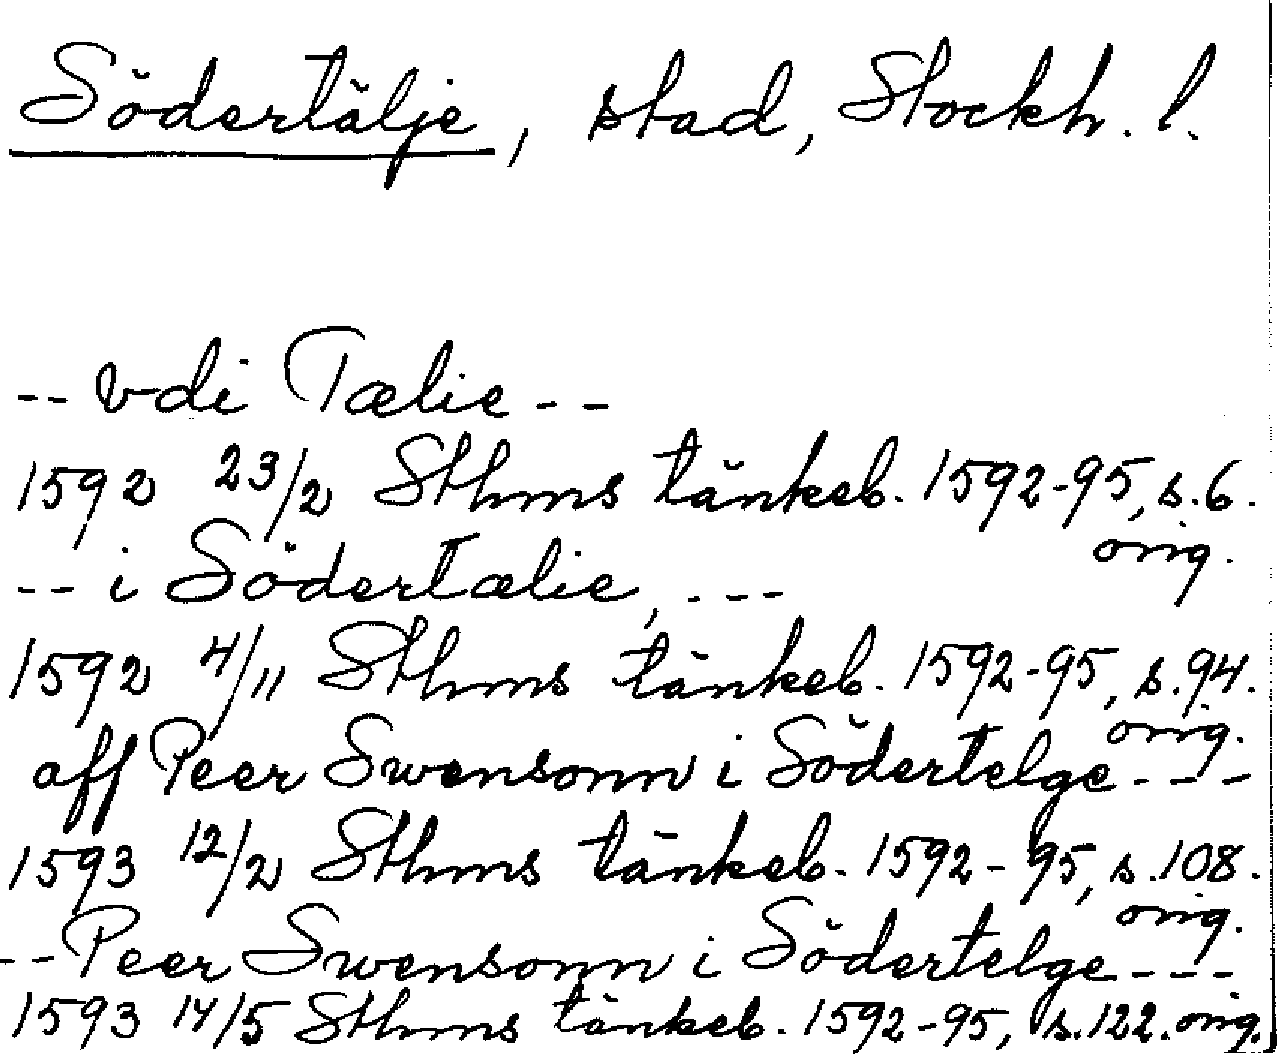 Södertälje, stad, Stockh. l.
-- vdi Tælie --
1592 23/2 Sthms tänkeb. 1592-95, s.6.
orig.
-- i Södertælie, ---
1592 4/11 Sthms tänkeb. 1592-95, s.94.
orig.
aff Peer Swensonn i Södertelge ---
1593 12/2 Sthms tänkeb. 1592-95, s.108.
orig.
-- Peer Swensonn i Södertelge ---
1593 14/5 Sthms tänkeb. 1592-95, s.122. orig.